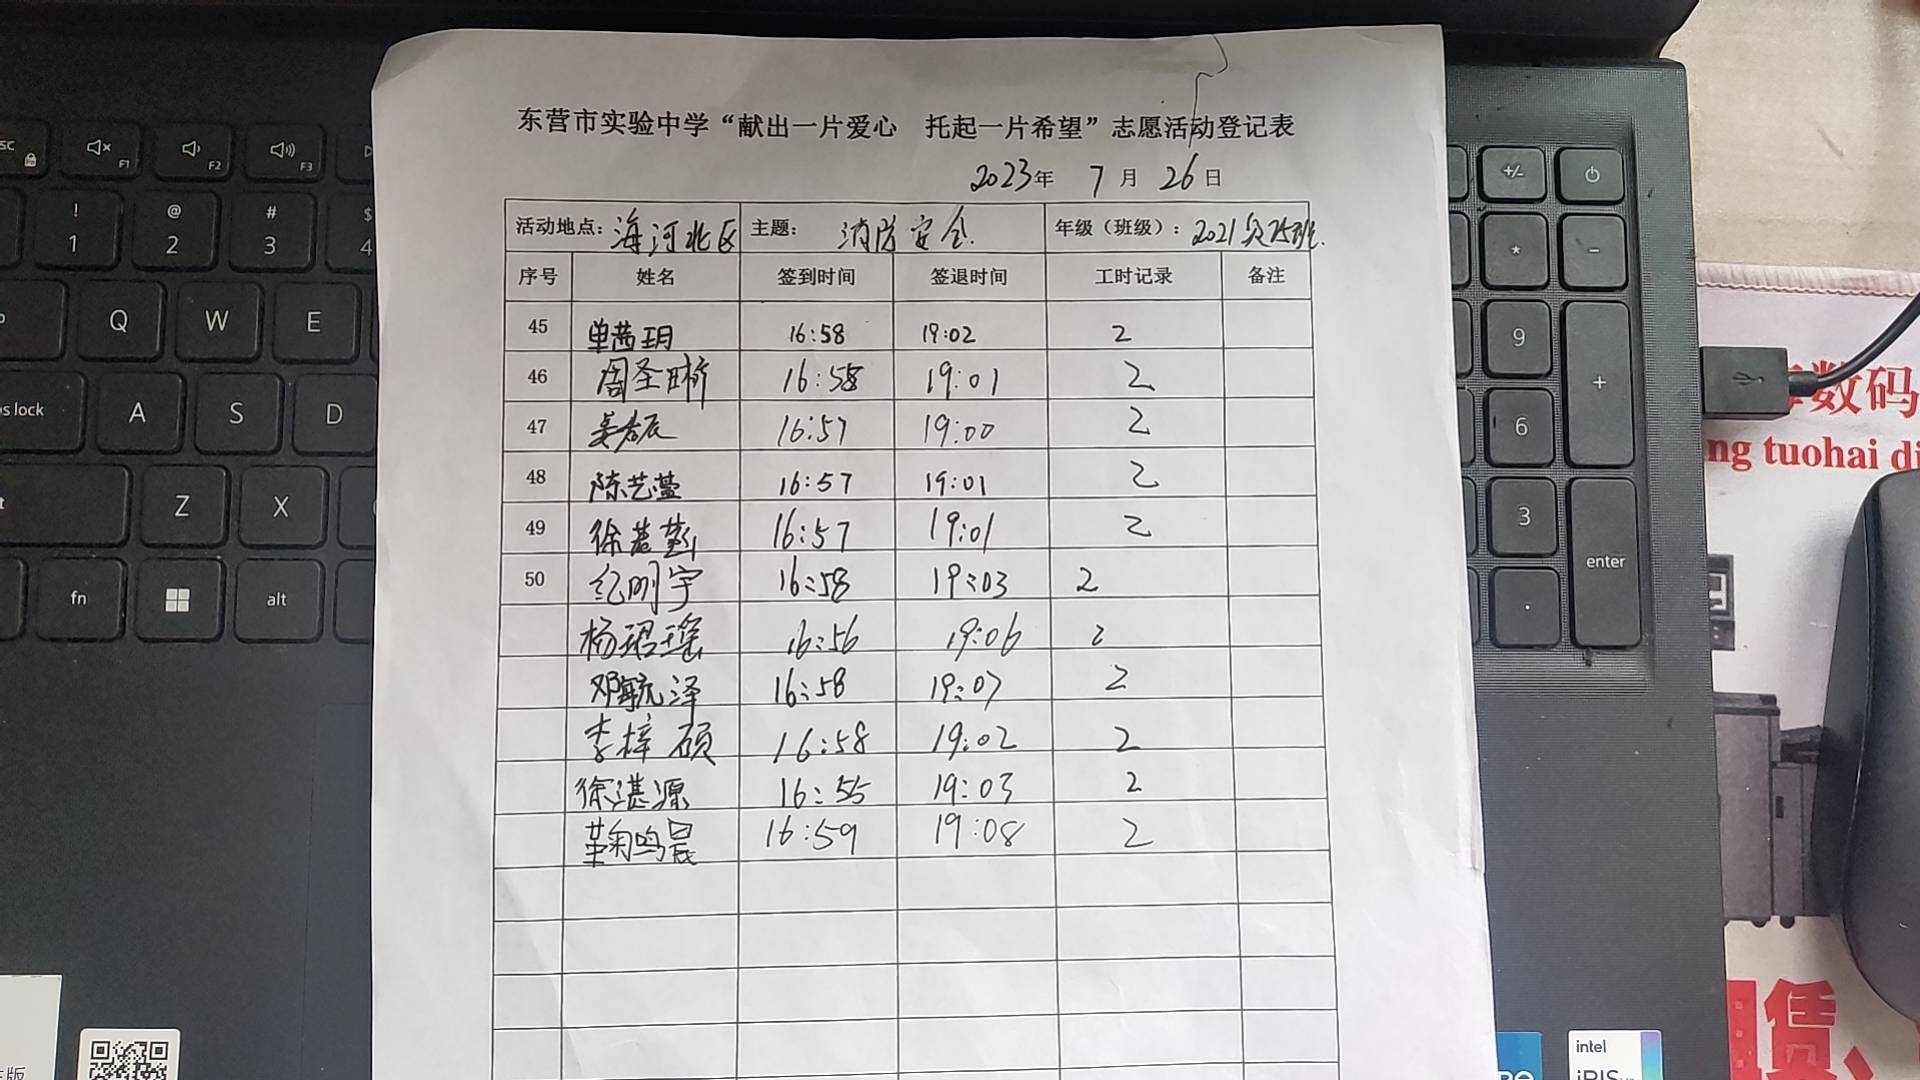 东营市实验中学“献出一片爱心 托起一片希望”志愿活动登记表
2023年 7月 26日
活动地点：海河北区 主题：消防安全. 年级（班级）：2021级25班.
序号 姓名 签到时间 签退时间 工时记录 备注
45 单茜玥 16:58 19:02 2
46 周圣晰 16:58 19:01 2
47 姜君辰 16:57 19:00 2
48 陈艺萱 16:57 19:01 2
49 徐 16:57 19:01 2
50 纪明宇 16:58 19:03 2
杨珺瑶 16:56 19:06 2
邓毓泽 16:58 19:07 2
李梓硕 16:58 19:02 2
徐湛源 16:55 19:03 2
鸣晨 16:59 19:08 2
F1 F2 F3
! 1 @ 2 # 3 $ 4
Q W E
lock A S D
Z X
fn alt
+/-
* -
9 +
6
3 enter
.
数码
tuohai
赁
intel